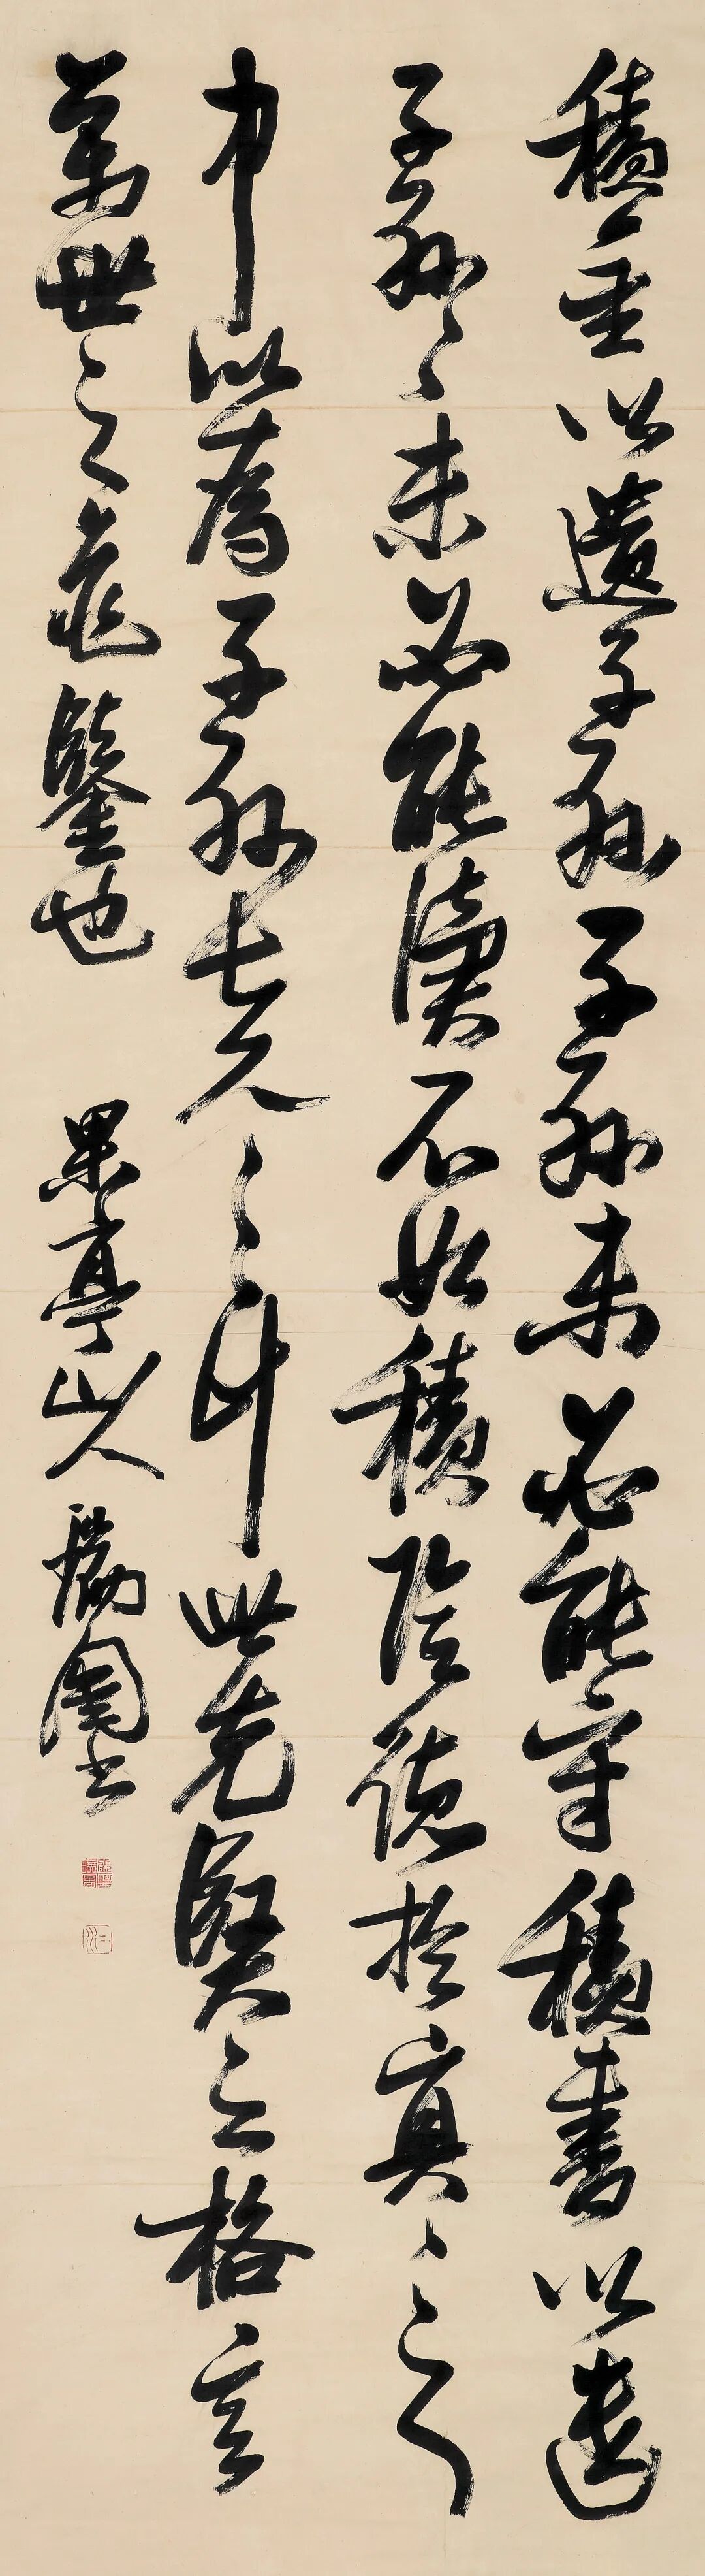 積金以遺子孫子孫未必能守積書以遺
子孫々未必能讀不如積陰德於冥々之
中以為子孫長久之計此先賢之格言
萬世之龜鑒也
果亭山人 瀏圖書